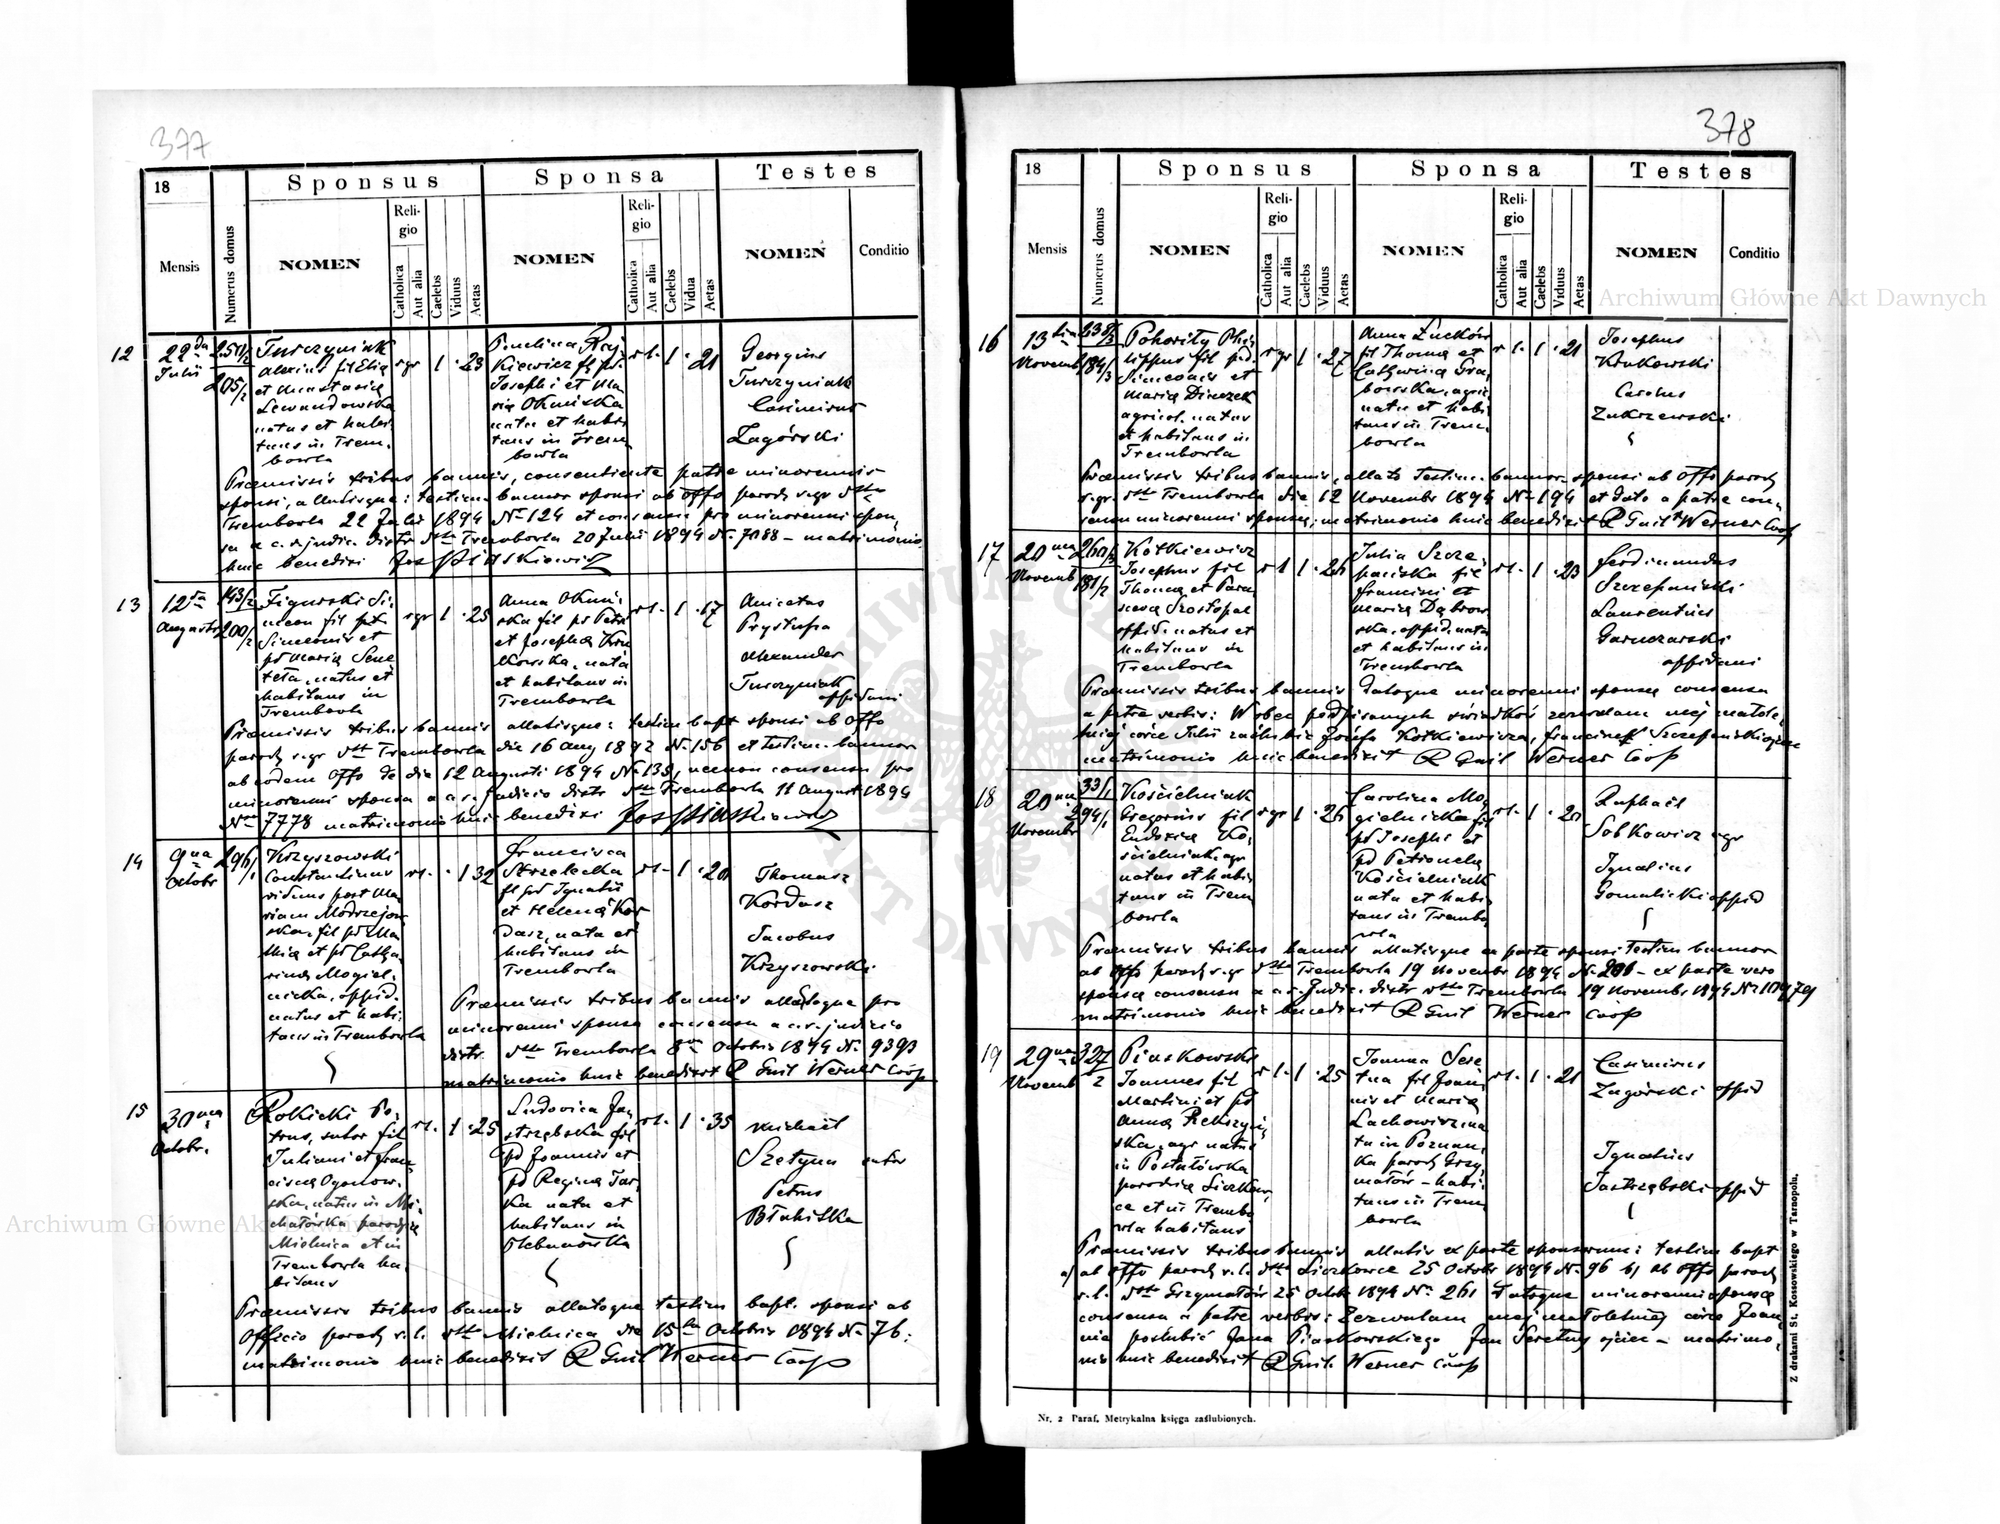 377
18
Sponsus
Sponsa
Testes
Mensis
Numerus domus
NOMEN
Religio
Catholica
Aut alia
Caelebs
Viduus
Aetas
NOMEN
Religio
Catholica
Aut alia
Caelebs
Vidua
Aetas
NOMEN
Conditio
12
22da
Julii
205/2
Turczyniak
Alexius fil Eliæ
et Anastasiæ
Lewandowska
natus et habi-
tans in Trem-
bowla
rgr
1
23
Josephi et Ma-
riæ Okmiska
nata et habi-
tans in Trem
bowla
rl.
1
21
Georgius
Turczyniak
Casimirus
Zagórski
Præmissis tribus bannis, consentiente patre minorennis
sponsi, allatisque: testim. bannor sponsi ab Offo paroch r.gr dtto
Trembowla 22 Julii 1894 No 124 et consensu pro minorenni spon-
sa a c.r. judic. distr dtto Trembowla 20 Julii 1894 No 7088 – matrimonio
huic benedixi
13
12ta
Augusti
143/2
200/2
Figurski Si-
meon fil pt
Simeonis et
pt Mariæ Sene
teta, natus et
habitans in
Trembowla
rgr
1
25
Anna Okmi-
ska fil pt Petri
et Josephæ Kru
kowska, nata
et habitans in
Trembowla
rl.
1
17
Anicetus
Prystupa
Alexander
Turczyniak
oppidani
Præmissis tribus bannis allatisque: testim bapt sponsi ab Offo
paroch r.gr dtto Trembowla die 16 Aug 1892 No 156 et testim. bannor
ab eodem Offo de die 12 Augusti 1894 No 138, necnon consensu pro
minorenni sponsa a c.r. Judicio distr dtto Trembowla 11 August 1894
No 7778 matrimonio huic benedixi
14
9na
Octobr
296/1
Krzyszowski
Constantinus
viduus post Ma
riam Modrzejow
ska, fil pt Ma
thiæ et pt Catha
rinæ Mogiel-
nicka, oppid.
natus et habi-
tans in Trembowla
rl.
1
32
Francisca
Strzelecka
fil pt Ignatii
et Helenæ Kor
dasz, nata et
habitans in
Trembowla
rl.
1
20
Thomasz
Kordasz
Jacobus
Krzyszowski
Præmissis tribus bannis allatoque pro
minorenni sponsa consensu a c.r. judicio
distr dtto Trembowla 8va Octobris 1894 No. 9393
matrimonio huic benedixit R Guil Werner Coop
15
30ma
Octobr.
Rokicki Pe-
trus, sutor fil
Juliani et Fran
ciscæ Ogonow-
ska, natus in Mi-
chałówka paroch
Mielnica et in
Trembowla ha-
bitans
rl.
1
25
Ludovica Ja-
strzębska fil
pt Joannis et
pt Reginæ Jar-
ka nata et
habitans in
Plebanówka
rl.
1
35
Michael
Szetyna
sutor
Petrus
Præmissis tribus bannis allatoque testim bapt. sponsi ab
Officio paroch r.l. dtto Mielnica die 15ta Octobris 1894 No 76:
matrimonio huic benedixit R Guil Werner Coop
378
18
Sponsus
Sponsa
Testes
Mensis
Numerus domus
NOMEN
Religio
Catholica
Aut alia
Caelebs
Viduus
Aetas
NOMEN
Religio
Catholica
Aut alia
Caelebs
Viduus
Aetas
NOMEN
Conditio
16
13tia
Novemb
Pohority Phi
lippus fil pt
Simeonis et
Maria Diuczek
agricol. natus
et habitans in
Trembowla
rgr
1
27
Anna Luców
fil Thomæ et
Catharinæ Gra
bowska, agric
nata et habi
tans in Trem-
bowla
rl.
1
21
Josephus
Krukowski
Carolus
Zakrzewski
Præmissis tribus bannis, allato testim. bannor. sponsi ab Offo paroch
r.gr. dtto Trembowla die 12 Novembr 1894 No 194 et dato a patre con-
sensu minorenni sponsæ; matrimonio huic benedixit R Guil Werner Coop
17
20ma
Novemb
181/2
Kotkiewicz
Josephus fil
Thomæ et Para
scevæ Szostopal
oppid. natus et
habitans in
Trembowla
rl
1
26
Julia Szcze-
pańska fil
Francisci et
Mariæ Dąbrow
ska, oppid. nata
et habitans in
Trembowla
rl.
1
23
Ferdinandus
Szczepański
Laurentius
Garnczarski
oppidani
Præmissis tribus bannis datoque minorenni sponsæ consensu
a patre verbis: Wobec podpisanych świadków zezwalam mej małole-
tniej córce Julii zaślubić Józefa Kotkiewicza, Franciszek Szczepański ojciec
matrimonio huic benedixit R Guil Werner Coop
18
20ma
Novembr
33/1
294/1
Kościelniak
Gregorius fil
Eudoxiæ Ko-
ścielniak, agr
natus et habi-
tans in Trem
bowla
rgr
1
26
Carolina Mo-
gielnicka fil
pt Josephi et
pt Petronelæ
Kościelniak
nata et habi-
tans in Trembo
wla
rl.
1
20
Raphael
Sobkowicz agr
Ignatius
Gomolicki oppid
Præmissis tribus bannis allatisque ex parte sponsi testim bannor
ab Offo paroch r.gr dtto Trembowla 19 Novembr 1894 No. 206 – ex parte vero
sponsæ consensu a c.r. Judic. distr dtto Trembowla 19 Novembr 1894 No 10979
matrimonio huic benedixit R Guil Werner Coop
19
29na
Novemb
327
2
Piaskowski
Joannes fil
Martini et pt
Anna Rekszyń
ska, agr natus
in Postołówka
parochia Liczkow
ce et in Trembo
wla habitans
rl.
1
25
Joanna Sere
tna fil Joan
nis et Mariæ
Lachowicz na
ta in Poznan
ka paroch Grzy
małów – habi-
tans in Trem
bowla
rl.
1
21
Casimirus
Zagórski
oppid
Ignatius
Jastrzębski
oppid
Præmissis tribus bannis allatis ex parte sponsorum: testim bapt
a/ ab Offo paroch r.l. dtto Liczkowce 25 Octobr 1894 No. 96 b/ ab Offo paroch
r.l. dtto Grzymałów 25 Octob 1894 No. 261 datoque minorenni sponsæ
consensu a patre verbis: Zezwalam mej małoletniej córce Joan-
nie poślubić Jana Piaskowskiego Jan Seretny ojciec – matrimo-
nio huic benedixit R Guil. Werner Coop
Nr. 2 Paraf. Metrykalna księga zaślubionych.
Z drukarni St. Kossowskiego w Tarnopolu.
Archiwum Główne Akt Dawnych
Archiwum Główne Akt Dawnych
ARCHIWUM GŁÓWNE AKT DAWNYCH